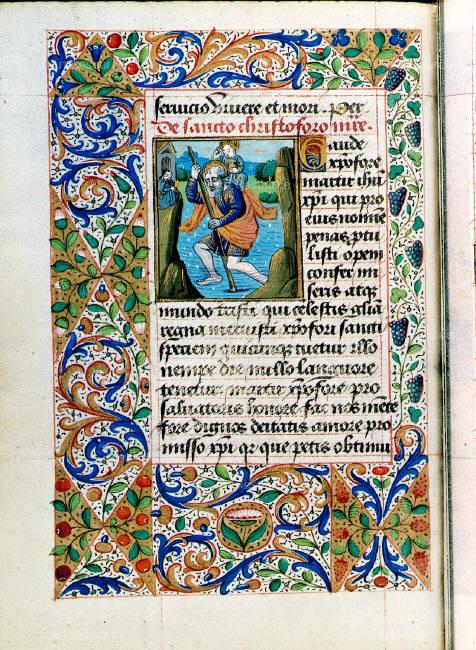 seruicio viuere et mori. Per
De sancto christoforo mr̄e.
Gaude
xp̄ofore
martir ihū
xp̄i qui pro
eius nomīe
penas ptu
listi opem
confer mi
seris atq̄
mundo tristi qui celestis gliā
regna meruisti xp̄ofori sancti
speciem quicunq̄ tuetur isto
nempe die nullo languore
tenetur. martir xp̄ofore pro
saluatoris honore fac nos mēte
fore dignos deitatis amore pro
misso xp̄i qr que petis obtinui